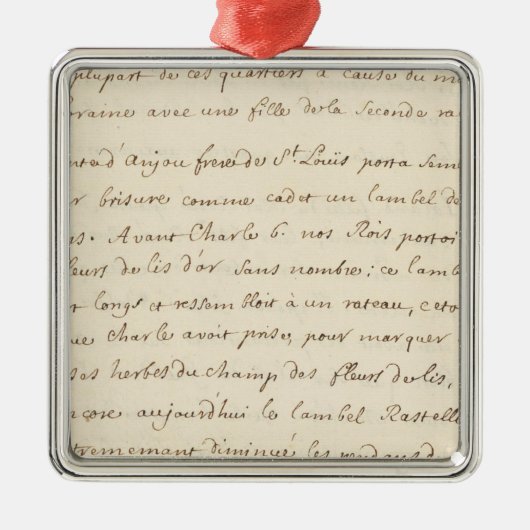 plupart de ces quartiers a cause du m
raine avec une fille de la Seconde ra
nte d'Anjou frere de St. Loüis porta Seme
r brisure comme cadet un lambel de
s. Avant Charle 6. nos Rois portoi
leurs de lis d'or Sans nombre; ce lamb
t longs et ressembloit à un rateau, ceto
ue Charle avoit prise, pour marquer
ses herbes du champ des fleurs de lis,
ncore aujourd'hui le lambel Rastelle
tremement diminué les pendans d